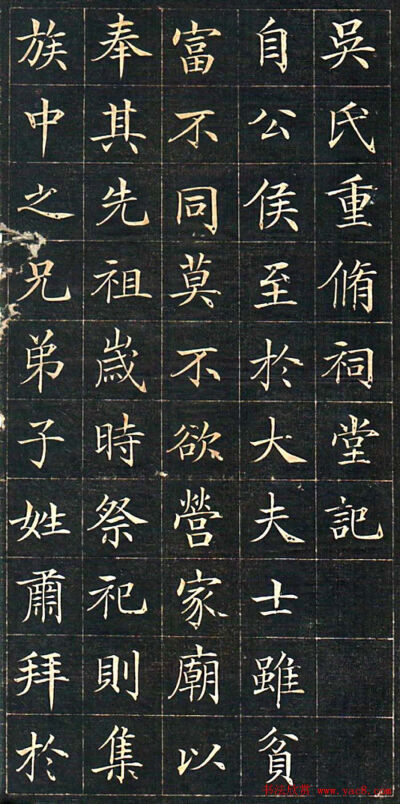 吳氏重脩祠堂記
自公侯至於大夫士雖貧
富不同莫不欲營家廟以
奉其先祖歲時祭祀則集
族中之兄弟子姓肅拜於
书法欣赏 www.yac8.com